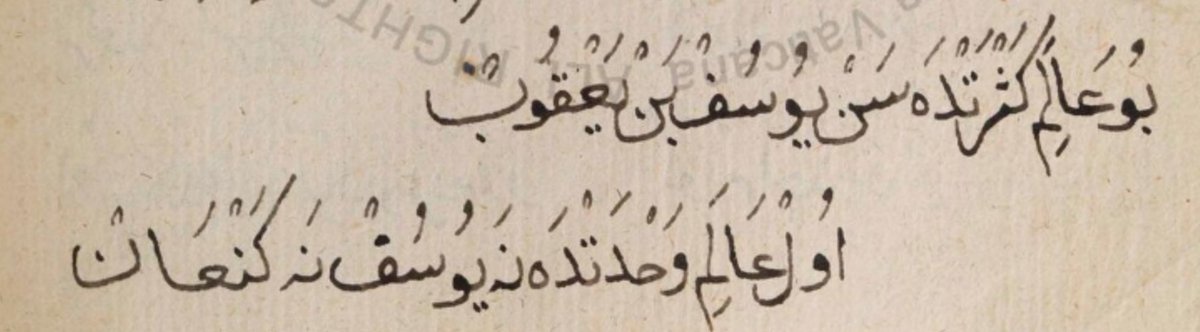 بُوعَالِمِ كَثْرَتْدَه سَنْ يُوسُفْ بَنْ يَعْقُوبْ
اُولْ عَالَمِ وَحْدَتْدَه نَه يُوسُفْ نَه كَنْعَانْ